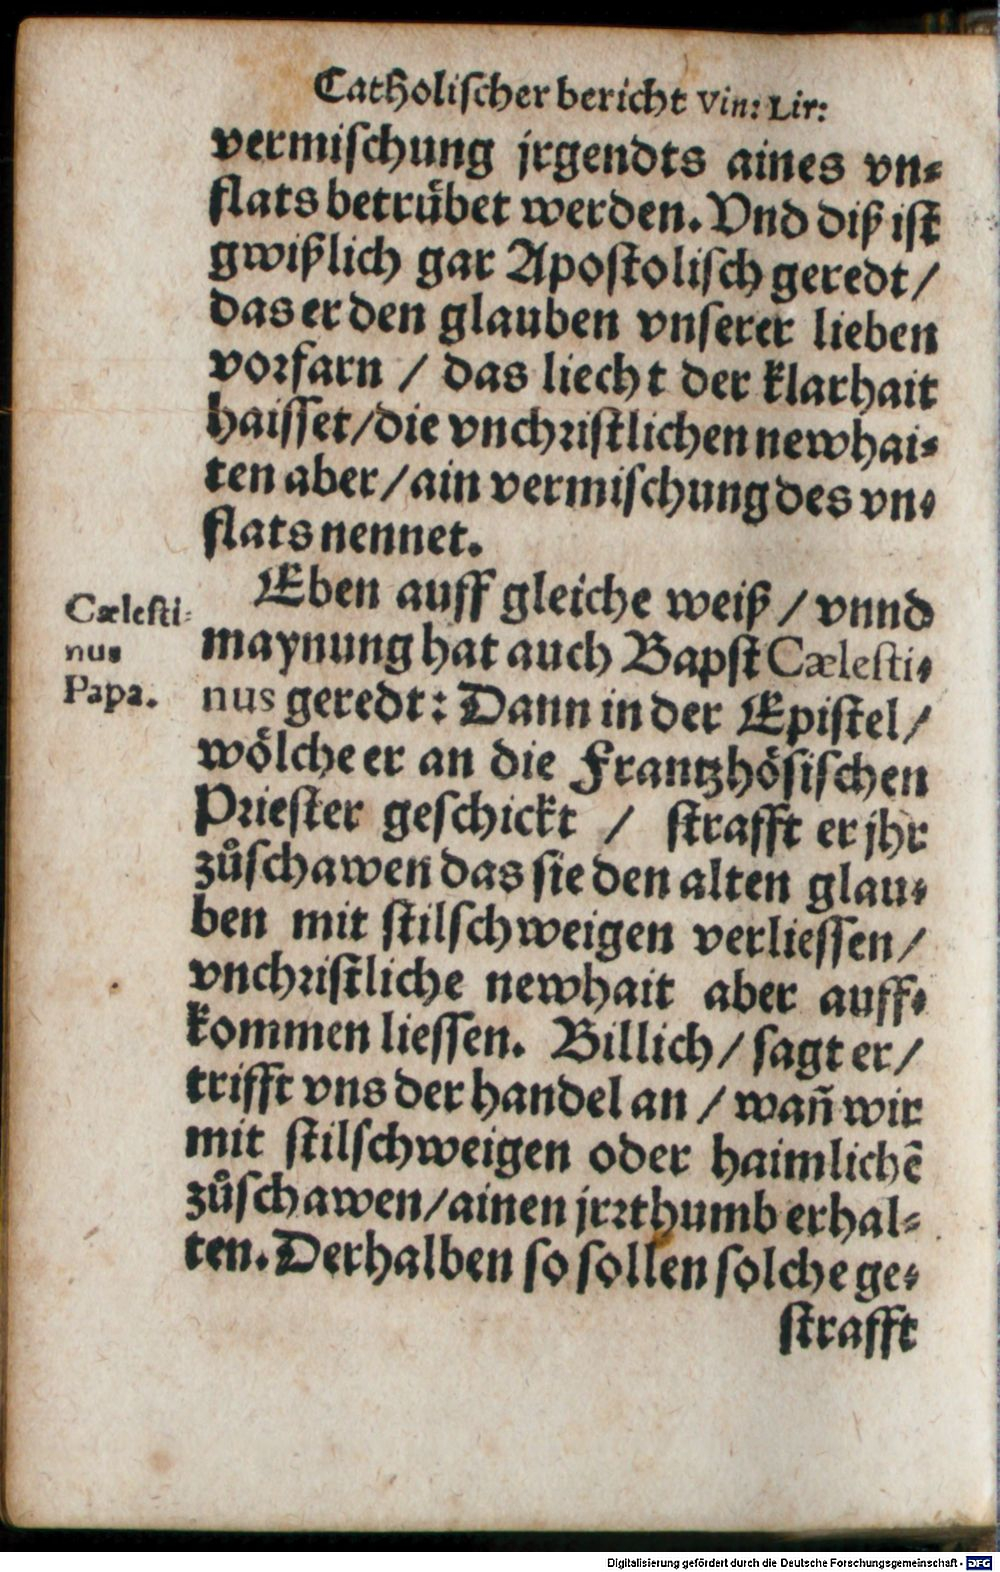 Catholischer bericht Vin: Lir:
vermischung jrgendts aines vn⸗
flats betruͤbet werden. Vnd diß ist
gwißlich gar Apostolisch geredt /
das er den glauben vnserer lieben
vorfarn / das liecht der klarhait
haisset / die vnchristlichen newhai⸗
ten aber / ain vermischung des vn⸗
flats nennet.
Eben auff gleiche weiß / vnnd
maynung hat auch Bapst Cælesti⸗
nus geredt: Dann in der Epistel /
woͤlche er an die Frantzhoͤsischen
Priester geschickt / strafft er jhr
zuͦschawen das sie den alten glau⸗
ben mit stilschweigen verliessen /
vnchristliche newhait aber auff⸗
kommen liessen. Billich / sagt er /
trifft vns der handel an / wañ wir
mit stilschweigen oder haimlichẽ
zuͦschawen / ainen jrrthumb erhal⸗
ten. Derhalben so sollen solche ge⸗
strafft
Cælesti⸗
nus
Papa.
Digitalisierung gefördert durch die Deutsche Forschungsgemeinschaft - DFG